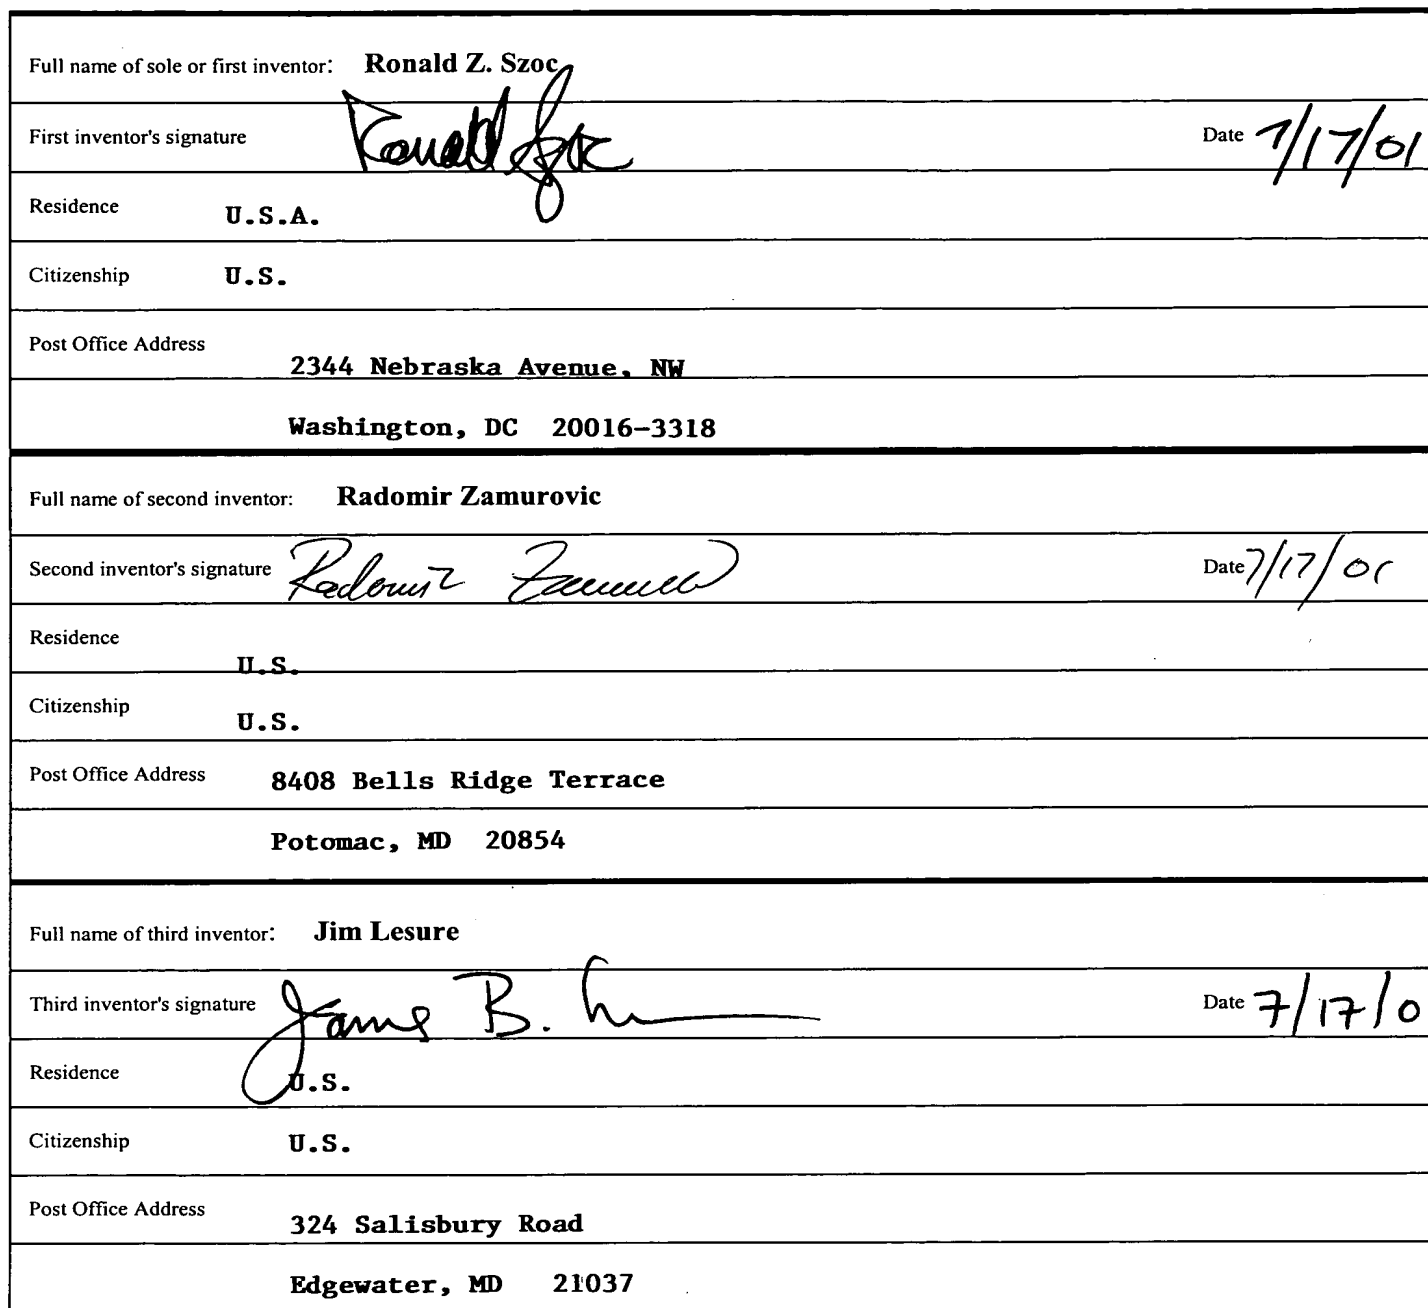 Full name of sole or first inventor: Ronald Z. Szoc
First inventor's signature Ronald Szoc Date 7/17/01
Residence U.S.A.
Citizenship U.S.
Post Office Address 2344 Nebraska Avenue, NW
Washington, DC 20016-3318
Full name of second inventor: Radomir Zamurovic
Second inventor's signature Radomir Date 7/17/01
Residence U.S.
Citizenship U.S.
Post Office Address 8408 Bells Ridge Terrace
Potomac, MD 20854
Full name of third inventor: Jim Lesure
Third inventor's signature James B. Date 7/17/0
Residence U.S.
Citizenship U.S.
Post Office Address 324 Salisbury Road
Edgewater, MD 21037